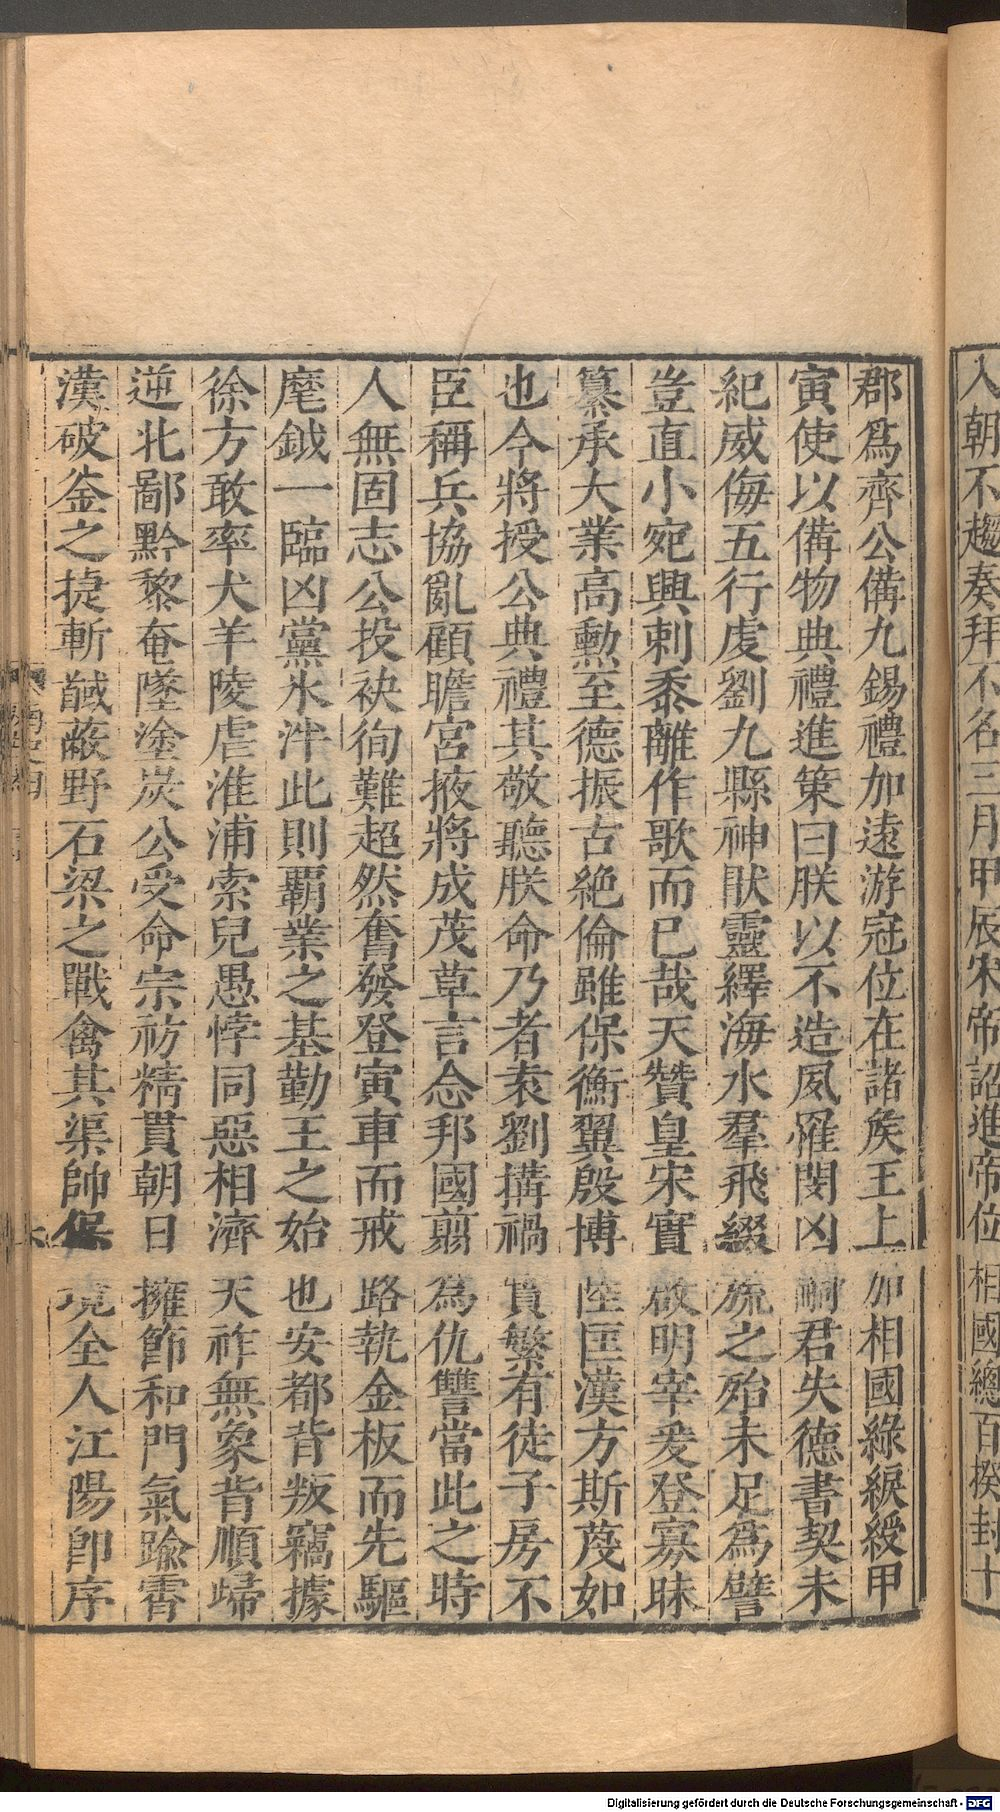 入朝不趨奏拜不名三月甲辰宋帝詔進帝位相國總百揆封十
郡爲齊公備九錫禮加遠游冠位在諸矦王上加相國綠綟綬甲
寅使以備物典禮進策曰朕以不造夙罹閔凶嗣君失德書契未
紀威侮五行虔劉九縣神歇靈繹海水羣飛綴旒之殆未足爲譬
豈直小宛興刺黍離作歌而已哉天贊皇宋實啟明宰爰登寡昧
纂承大業高勳至德振古絶倫雖保衡翼殷博陸匡漢方斯蔑如
也今將授公典禮其敬聽朕命乃者袁劉搆禍實繁有徒子房不
臣稱兵協亂顧瞻宮掖將成茂草言念邦國翦為仇讐當此之時
人無固志公投袂徇難超然奮發登寅車而戒路執金板而先驅
麾鉞一臨凶黨氷泮此則覇業之基勤王之始也安都背叛竊據
徐方敢率犬羊陵虐淮浦索兒愚悖同惡相濟天祚無象背順歸
逆北鄙黔黎奄墜塗炭公受命宗祊精貫朝日擁節和門氣踰霄
漢破釡之捷斬馘蔽野石梁之戰禽其渠帥保境全人江陽卽序
Digitalisierung gefördert durch die Deutsche Forschungsgemeinschaft - DFG